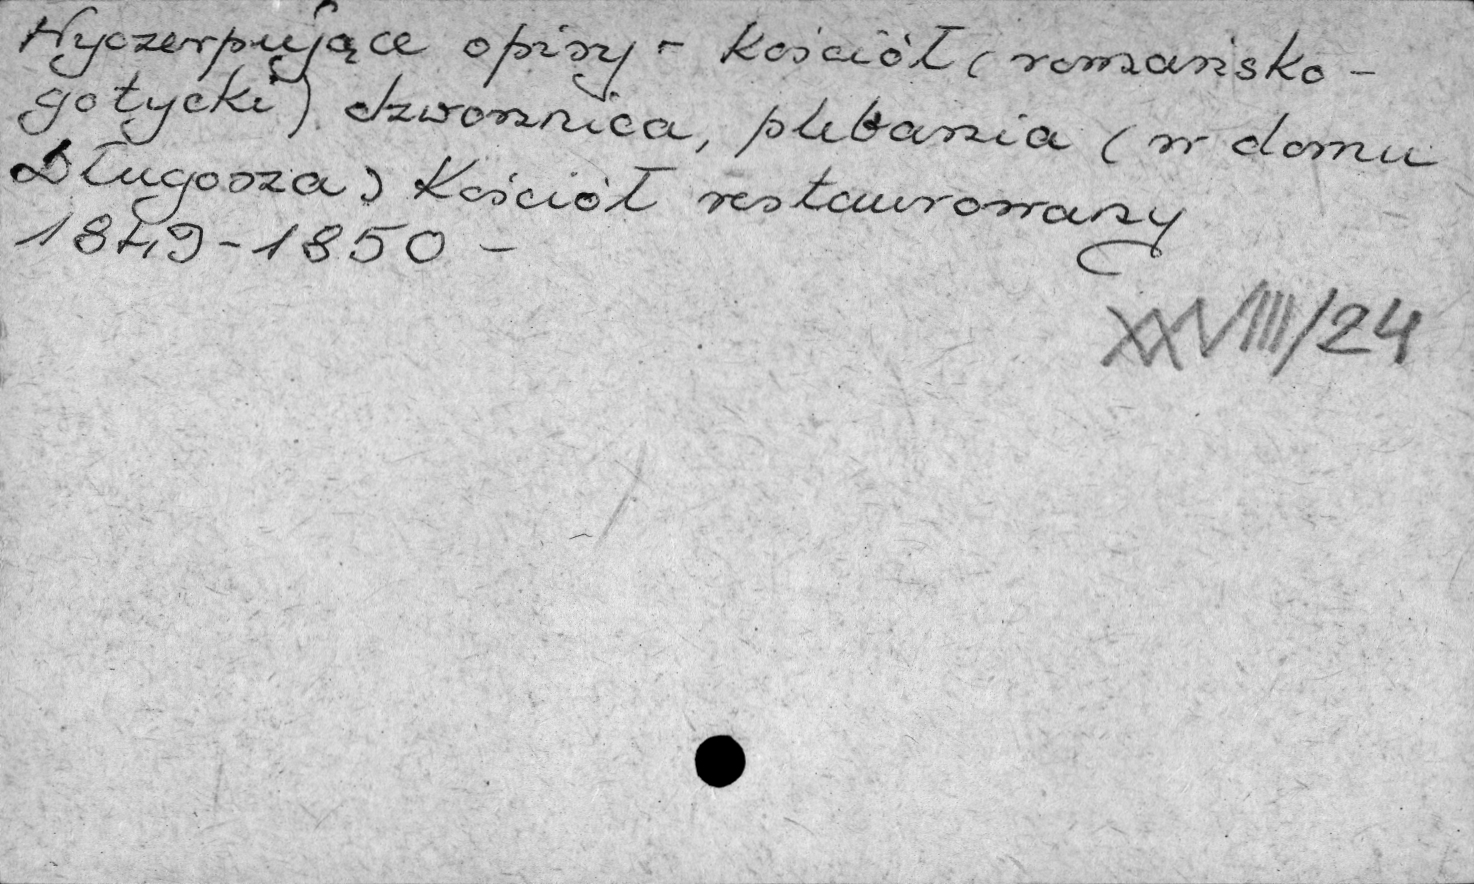 Wyczerpujące opisy - Kościół (romańsko -
gotycki) dzwonnica, plebania (w domu
Długosza) Kościół restaurowany
1849-1850 -
XXVIII/24